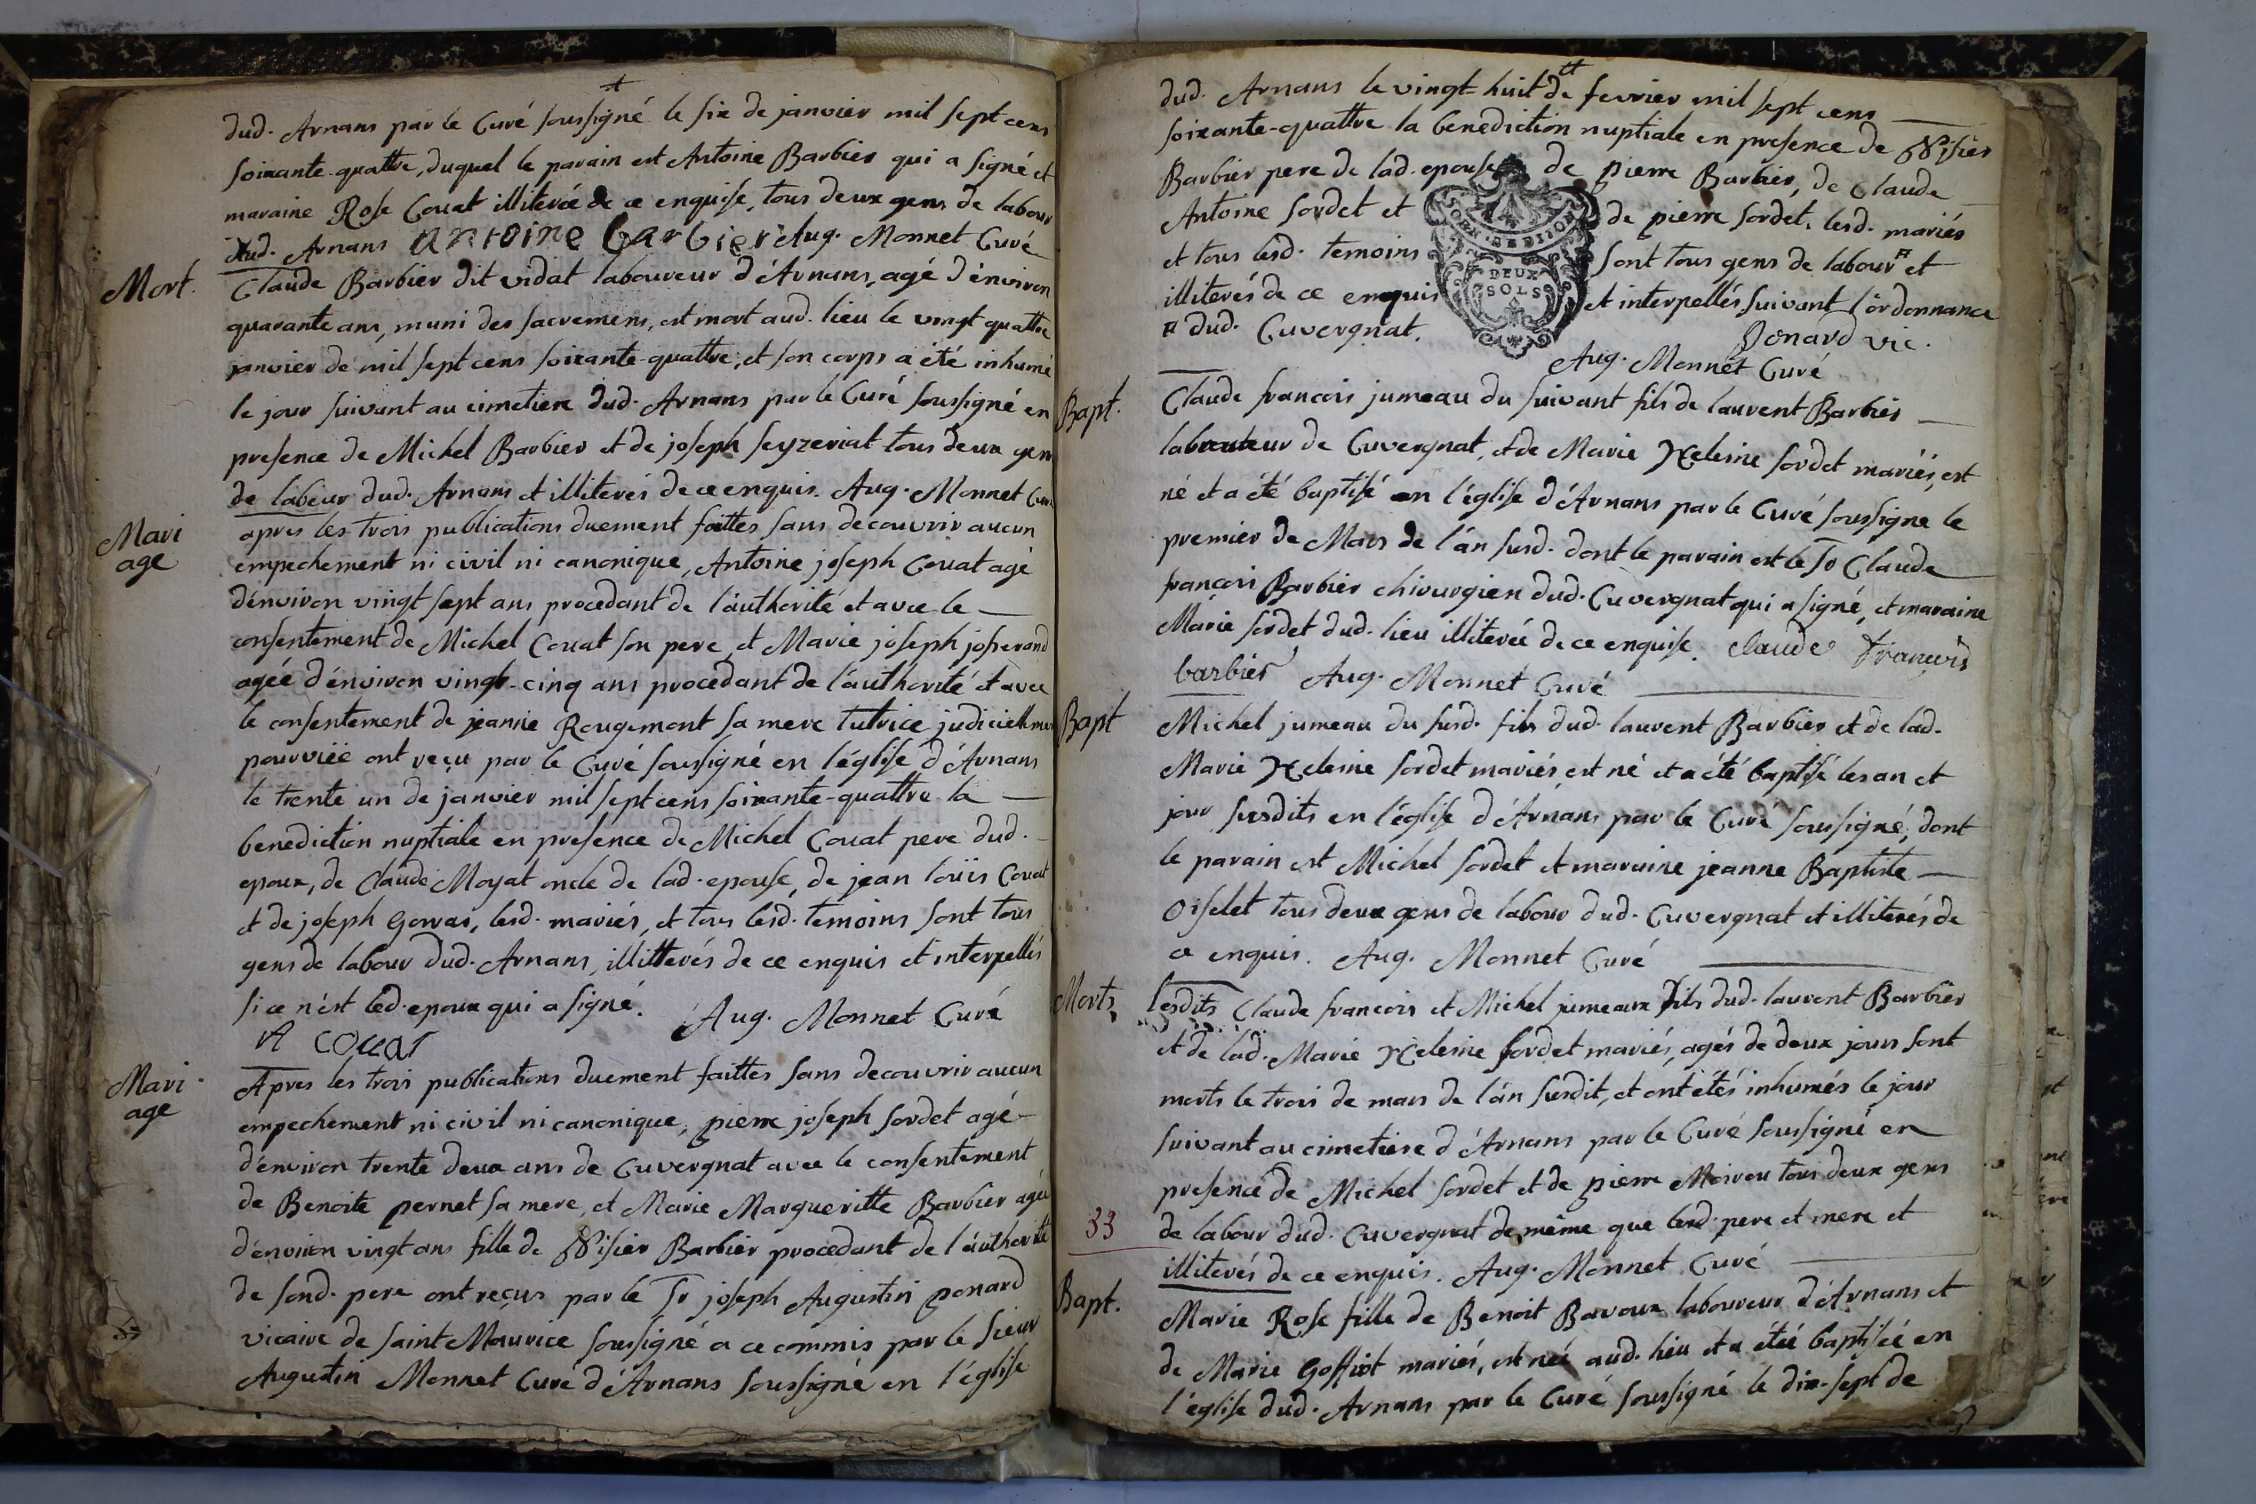 dud. Arnans par le Curé soussigné le six de janvier mil sept cens
soixante-quattre, duquel le parain est Antoine Barbier qui a signé et
maraine Rose Couat illiterée de ce enquise, tous deux gens de labour
dud. Arnans Antoine barbier Aug. Monnet Curé
Mort.
Claude Barbier dit vidat laboureur d'Arnans, agé d'environ
quarante ans, muni des sacremens, est mort aud. lieu le vingt quattre
janvier de mil sept cens soixante-quattre, et son corps a été inhumé
le jour suivant au cimetiere dud. Arnans par le Curé soussigné en
presence de Michel Barbier et de joseph seyzeriat tous deux gens
de labour dud. Arnans et illiterés de ce enquis. Aug. Monnet Curé
Mari
age
apres les trois publications duement faittes sans decouvrir aucun
empechement ni civil ni canonique, Antoine joseph Couat agé
d'environ vingt sept ans procedant de l'authorité et avec le
consentement de Michel Couat son pere, et Marie joseph josserand
agée d'environ vingt-cinq ans procedant de l'authorité et avec
le consentement de jeanne Rougemont sa mere tutrice judiciellement
pourvüe ont reçu par le Curé soussigné en l'église d'Arnans
le trente un de janvier mil sept cens soixante-quattre la
benediction nuptiale en presence de Michel Couat pere dud.
epoux, de Claude Moyat oncle de lad. epouse, de jean loüis Couat
et de joseph Gorvas, lesd. mariés, et tous lesd. temoins sont tous
gens de labour dud. Arnans, illitterés de ce enquis et interpellés
si ce n'est led. epoux qui a signé. Aug. Monnet Curé
A couat
Mari
age
Apres les trois publications duement faittes sans decouvrir aucun
empechement ni civil ni canonique, pierre joseph sordet agé
d'environ trente deux ans de Cuvergnat avec le consentement
de Benoite pernet sa mere, et Marie Margueritte Barbier agée
d'environ vingt ans fille de Barbier procedant de l'authorité
de sond. pere ont reçus par le Sr joseph Augustin ponard
vicaire de saint Maurice soussigné a ce commis par le sieur
Augustin Monnet Curé d'Arnans soussigné en l'église
dud. Arnans le vingt-huit de fevrier mil sept cens
soixante-quattre la benediction nuptiale en presence de
Barbier pere de lad. epouse de pierre Barbier, de Claude
Antoine sordet et de pierre sordet. lesd. mariés
et tous lesd. temoins sont tous gens de labour et
illiterés de ce enquis et interpellés suivant l'ordonnance
dud. Cuvergnat. ponard vic.
DEUX
SOLS
Aug. Monnet Curé
Bapt.
Claude francois jumeau du suivant fils de laurent Barbier
laboureur de Cuvergnat, et de Marie Xelesine sordet mariés, est
né et a été baptisé en l'église d'Arnans par le Curé soussigne le
premier de Mars de l'an susd. dont le parain est le Sr Claude
francois Barbier chirurgien dud. Cuvergnat qui a signé, et maraine
Marie sordet dud. lieu illiterée de ce enquise. claude françois
barbier Aug. Monnet Curé
Bapt
Michel jumeau du susd. fils dud. laurent Barbier et de lad.
Marie Xelesine sordet mariés est né et a été baptisé les an et
jour susdits en l'église d'Arnans par le Curé soussigné, dont
le parain est Michel sordet et maraine jeanne Baptiste
Oiselet tous deux gens de labour dud. Cuvergnat et illiterés de
ce enquis. Aug. Monnet Curé
Morts
lesdits Claude francois et Michel jumeaux fils dud. laurent Barbier
et de lad. Marie Xelesine sordet mariés, agés de deux jours sont
morts le trois de mars de l'an susdit, et ont étés inhumés le jour
suivant au cimetiere d'Arnans par le Curé soussigné en
presence de Michel sordet et de pierre Moirou tous deux gens
33
de labour dud. Cuvergnat de même que lesd. pere et mere et
illiterés de ce enquis. Aug. Monnet Curé
Bapt.
Marie Rose fille de Benoit Bavoux laboureur d'Arnans et
de Marie Goffiot mariés, est née aud. lieu et a étée baptisée en
l'église dud. Arnans par le Curé soussigné le dix-sept de